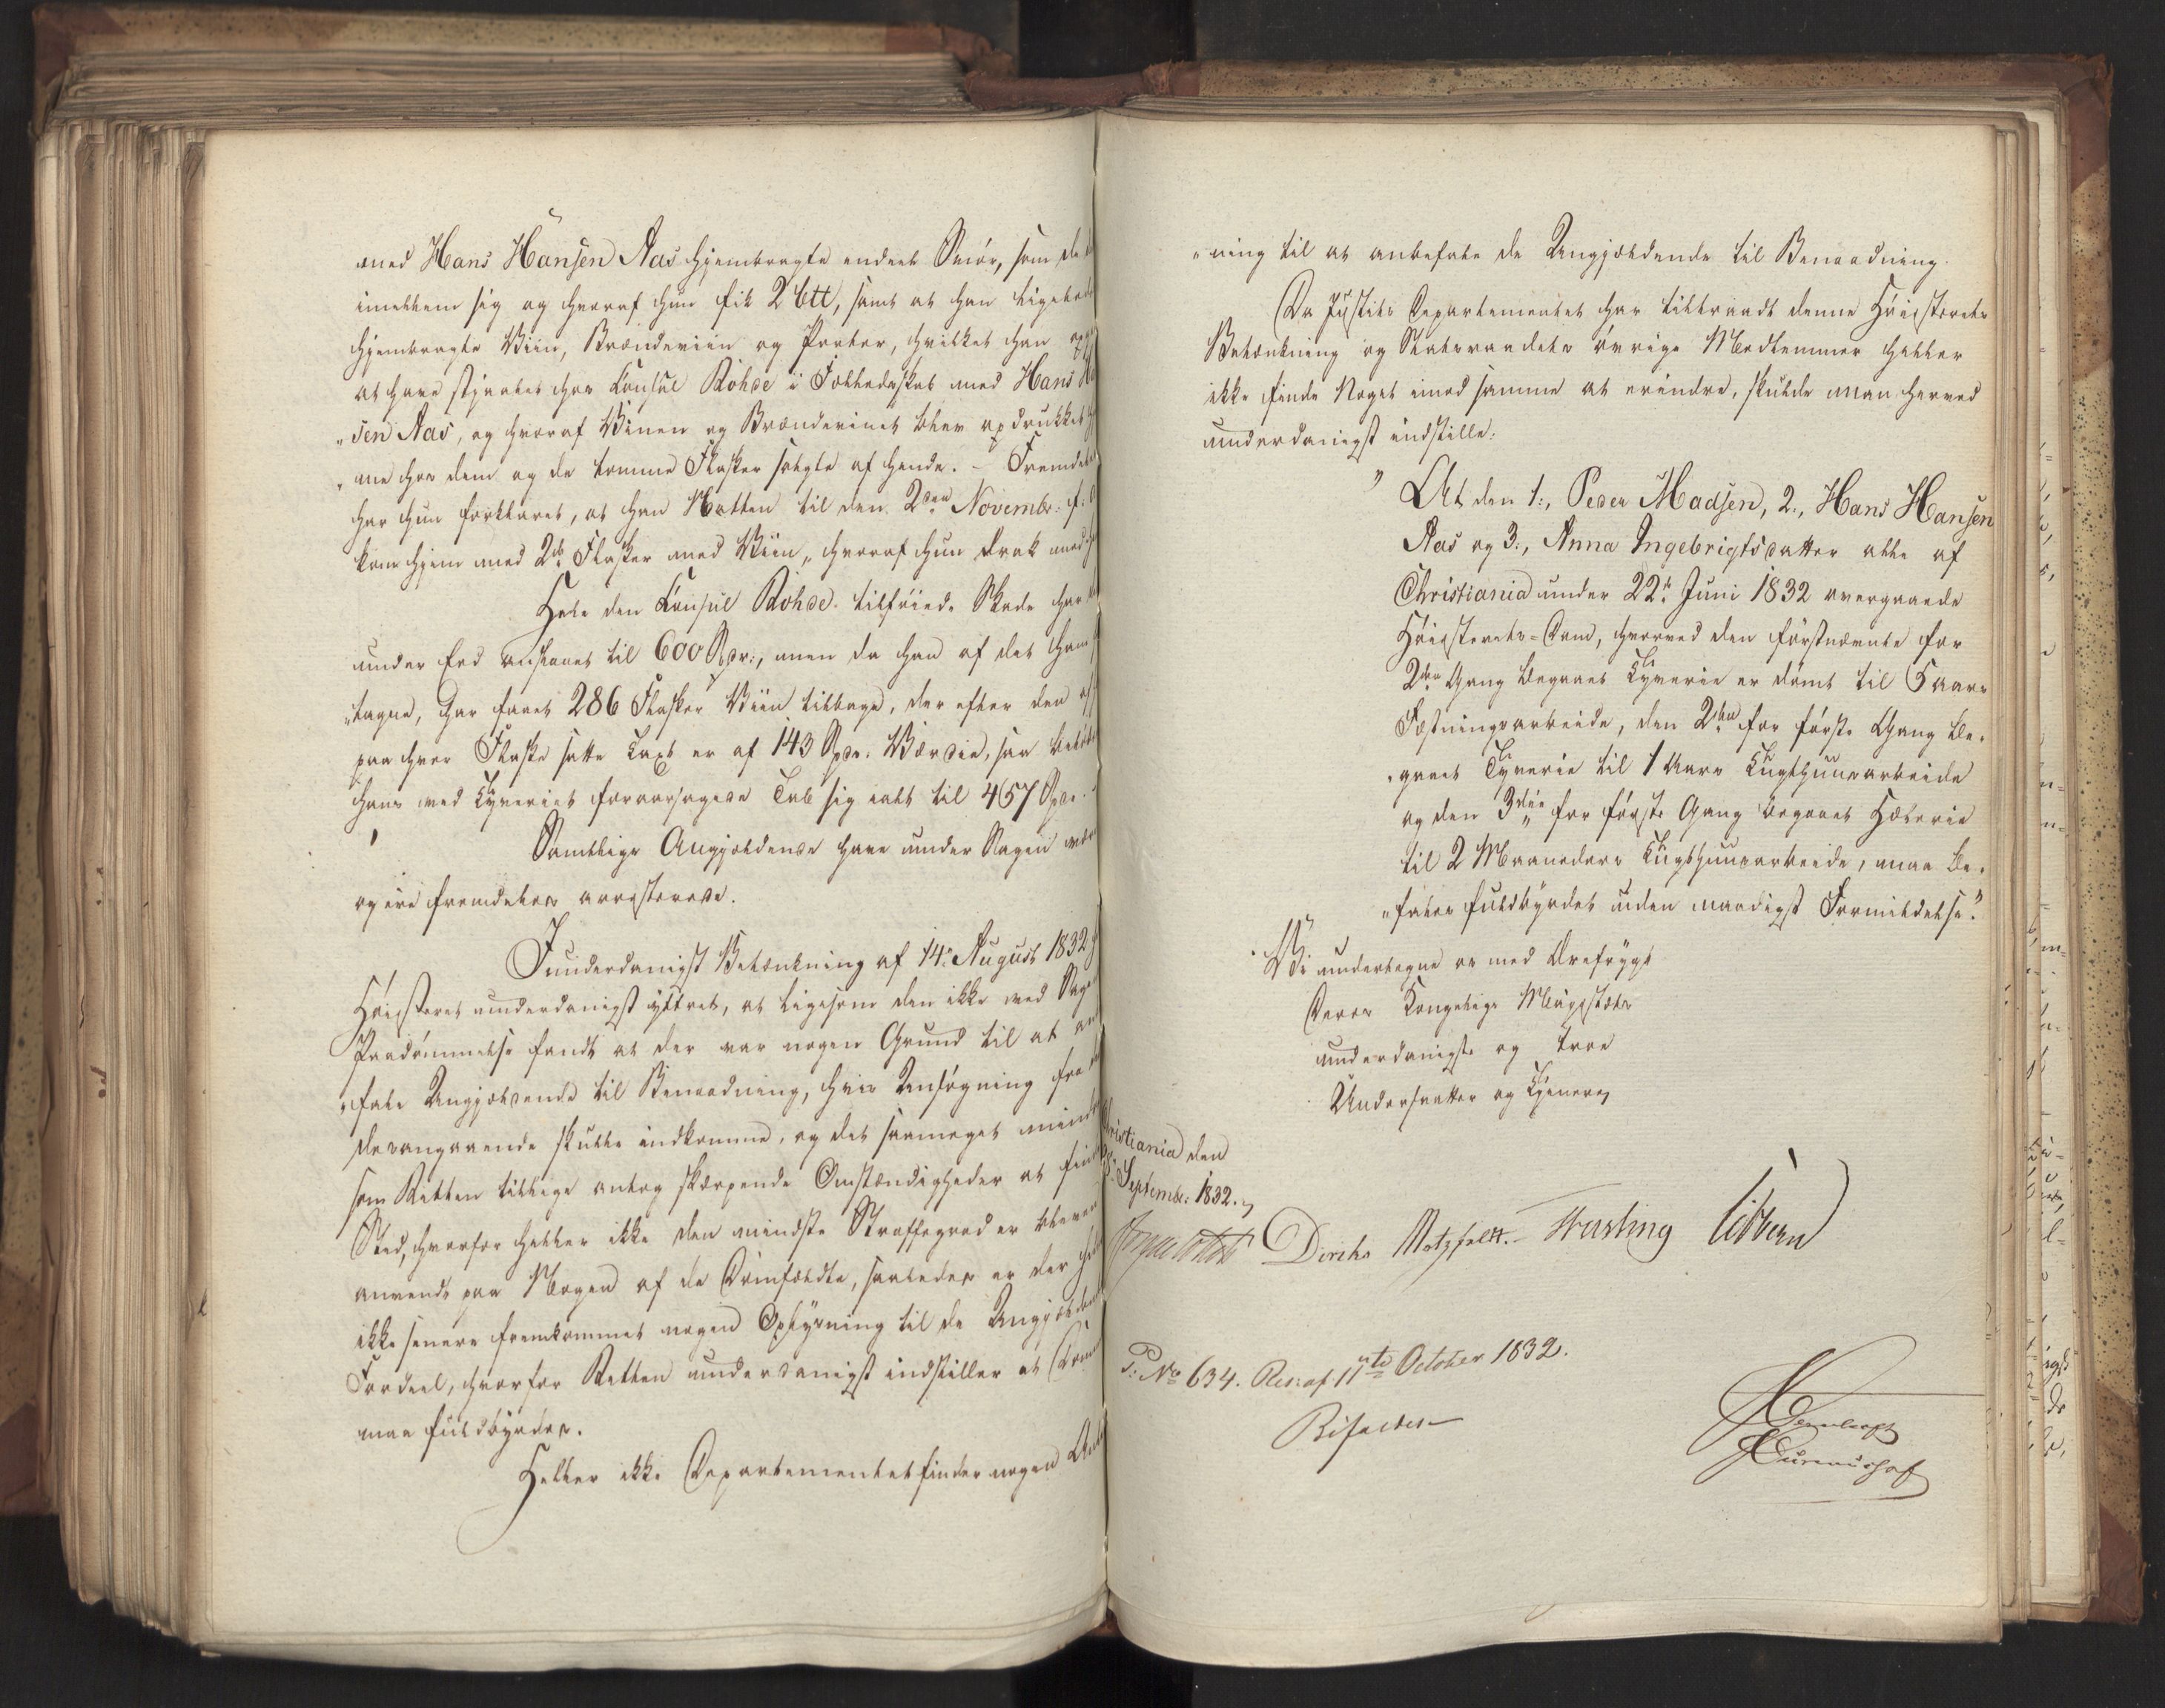 med Hans Hansen Aas hjembragte endeel Smör, som de
imellem sig og hvoraf hun fik 2 btt, samt at han ligeledes
hjembragte Viin, Brændeviin og Porter, hvilket han
at have stjaalet hos Consul Rohde i Fælledskab med Hans
„sen Aas, og hvoraf Vinen og Brændevinet blev opdrukket
„me hos dem og de tomme Flasker solgte af hende. – Fremdeles
har hun forklaret, at han Natten til den 2den Novembr: f.
kom hjem med 2de Flasker med Viin, hvoraf hun drak med
Hele den Consul Rohde tilföiede Skade har
under Eed anslaaet til 600 Spdr:, men da han af det ham
„tagne, har faaet 286 Flasker Viin tilbage, der efter den
paa hver Flaske satte Taxt er af 143 Spdr. Værdie, saa beløber
hans ved Tyveriet foraarsagede Tab sig ialt til 457 Spdr.
Samtlige Angjældende have under Sagen været
og ere fremdeles arresterede.
I underdanigst Betænkning af 14de August 1832
Höiesteret underdanigst yttret, at ligesom den ikke ved Sagens
Paadömmelse fandt at der var nogen Grund til at an
„fale Angjældende til Benaadning, hvis Ansögning fra
desangaaende skulle indkomme, og det saameget mindre
som Retten tillige antog skærpende Omstændigheder at finde
Sted, hvorfor heller ikke den mindste Straffegrad er bleven
anvendt paa Nogen af de Domfældte, saaledes er der heller
ikke senere fremkommet nogen Oplysning til de Angjældendes
Fordeel, hvorfor Retten underdanigst indstiller at Dommen
maa fuldbyrdes.
Heller ikke Departementet finder nogen An
„ning til at anbefale de Angjældende til Benaadning.
Da Justits Departementet har tiltraadt denne Höiesterets
Betænkning og Statsraadets övrige Medlemmer heller
ikke finde Noget imod samme at erindre, skulde man herved
underdanigst indstille:
„At den 1., Peder Madsen, 2., Hans Hansen
Aas og 3., Anna Ingebrigtsdatter alle af
Christiania under 22de Juni 1832 overgaaede
Höiesterets-Dom, hvorved den förstnævnte for
2den Gang begaaet Tyverie er dömt til 5 Aars
Fæstningsarbeide, den 2den for förste Gang be-
„gaaet Tyverie til 1 Aars Tugthuusarbeide
og den 3die for förste Gang begaaet Hæleri
til 2 Maaneders Tugthuusarbeide, maa be-
„fales fuldbyrdet uden naadigst Formildelse.”
Vi undertegne os med Ærefrygt
Deres Kongelige Majestæts
underdanigste og troe
Undersaatter og Tjenere
Christiania den
Septembr: 1832.
Diriks Motzfeldt. Fasting Sibbern
P: No 634. Res: af 11te October 1832.
Bifaldes
Bureauchef